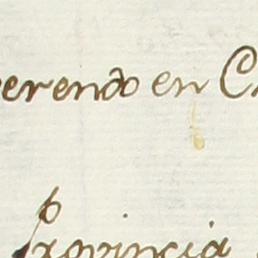 erendo en C
Provincia